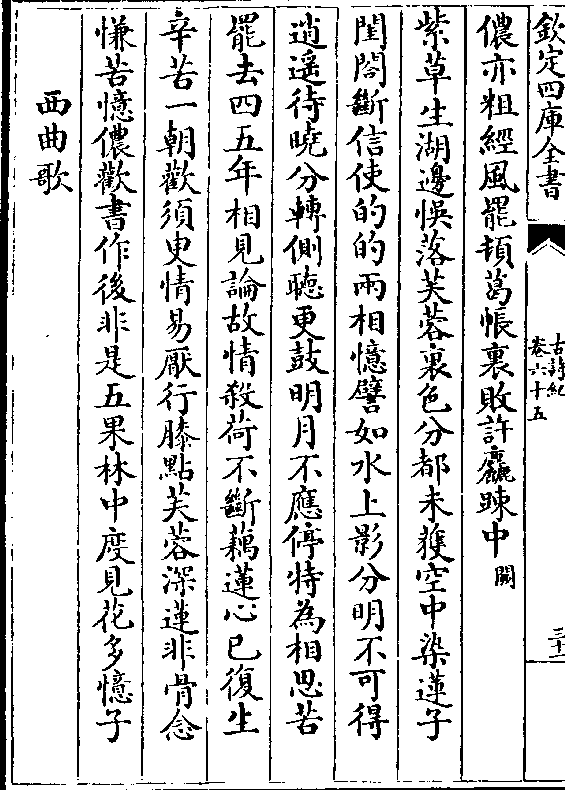 欽定四庫全書
古詩紀
卷六十五
三十一
儂亦粗經風罷頓葛帳裏敗許麤踈中闕
紫草生湖邊悞落芙蓉裏色分都未獲空中染蓮子
閨閤斷信使的的兩相憶譬如水上影分明不可得
逍遥待曉分轉側聴更鼓明月不應停特為相思苦
罷去四五年相見論故情殺荷不斷藕蓮心已復生
辛苦一朝歡須更情易厭行膝點芙蓉深蓮非骨念
慊苦憶儂歡書作後非是五果林中度見花多憶子
西曲歌